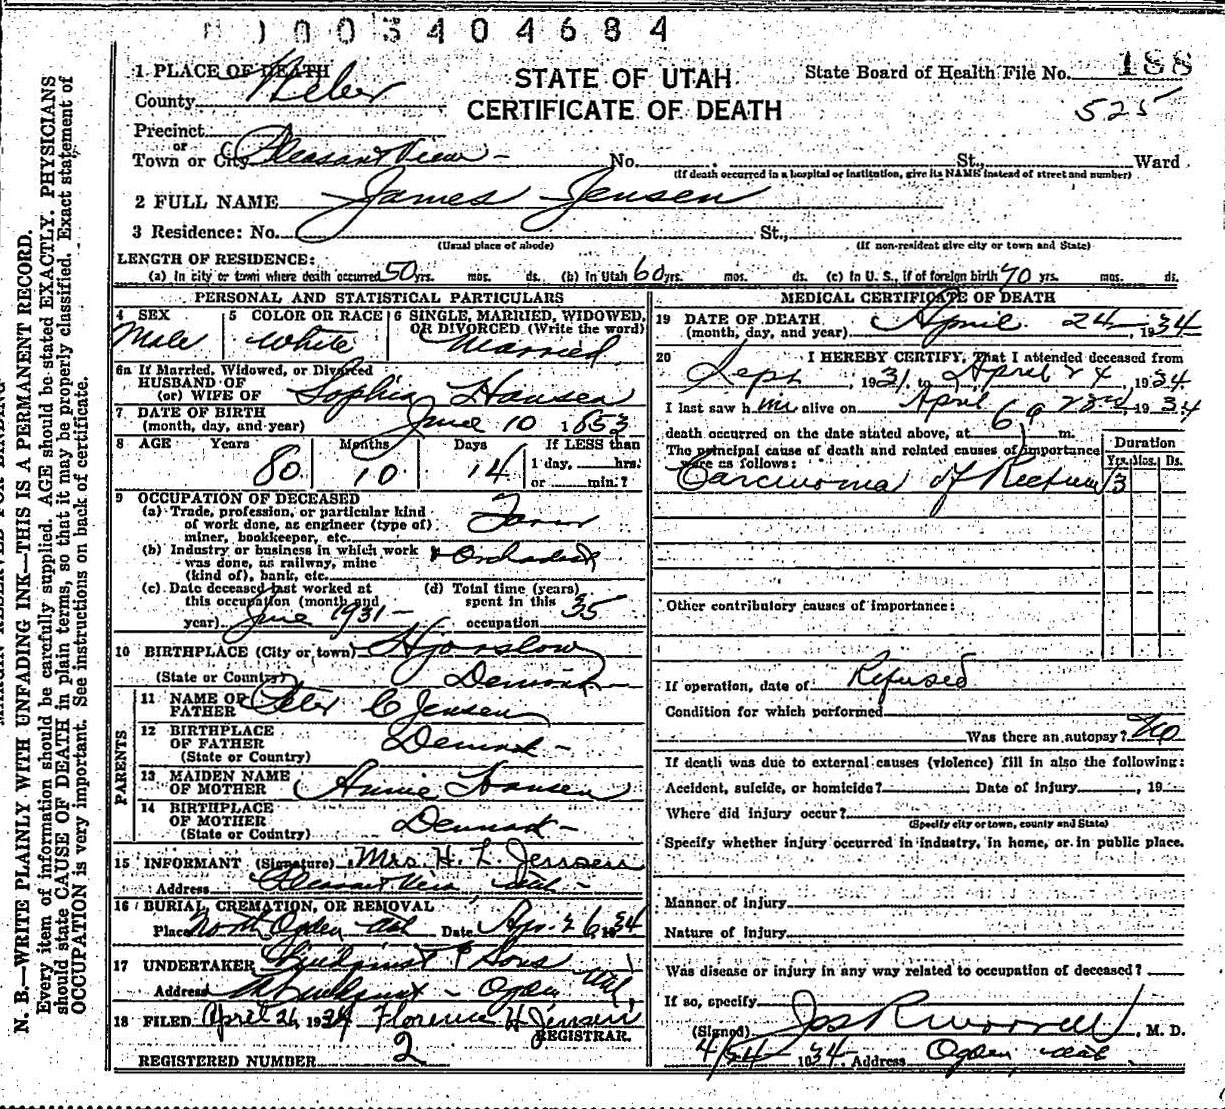 1003404684
STATE OF UTAH
CERTIFICATE OF DEATH
State Board of Health File No. 188
525
1 PLACE OF DEATH
County Weber
Precinct
or
Town or City Pleasant View - No. St., Ward
(If death occurred in a hospital or institution, give its NAME instead of street and number)
2 FULL NAME James Jensen
3 Residence: No. St.,
(Usual place of abode) (If non-resident give city or town and State)
LENGTH OF RESIDENCE:
(a) In city or town where death occurred 50 yrs. mos. ds. (b) In Utah 60 yrs. mos. ds. (c) In U. S., if of foreign birth 70 yrs. mos. ds.
PERSONAL AND STATISTICAL PARTICULARS
4 SEX 5 COLOR OR RACE 6 SINGLE, MARRIED, WIDOWED, OR DIVORCED (Write the word)
Male White Married
6a If Married, Widowed, or Divorced
HUSBAND OF
(or) WIFE OF Sophia Hansen
7 DATE OF BIRTH
(month, day, and year) June 10 1853
8 AGE Years Months Days If LESS than
80 10 14 1 day, hrs.
or min.?
9 OCCUPATION OF DECEASED
(a) Trade, profession, or particular kind
of work done, as engineer (type of)
miner, bookkeeper, etc. Farmer
(b) Industry or business in which work
was done, as railway, mine
(kind of), bank, etc. & Orchardist
(c) Date deceased last worked at
this occupation (month and
year) June 1931 -
(d) Total time (years)
spent in this
occupation 35
10 BIRTHPLACE (City or town) Hjorslow
(State or Country) Denmark
PARENTS
11 NAME OF
FATHER Peter C Jensen
12 BIRTHPLACE
OF FATHER Denmark -
(State or Country)
13 MAIDEN NAME
OF MOTHER Annie Hansen
14 BIRTHPLACE
OF MOTHER Denmark -
(State or Country)
15 INFORMANT (Signature) Mrs. H. L. Jensen
Address Pleasant View, Utah -
16 BURIAL, CREMATION, OR REMOVAL
Place North Ogden Utah Date Apr. 26, 1934
17 UNDERTAKER Lindquist & Sons
Address Ogden Utah
18 FILED April 26, 1934 Florence H Jensen
REGISTRAR.
REGISTERED NUMBER 2
MEDICAL CERTIFICATE OF DEATH
19 DATE OF DEATH
(month, day, and year) April 24 1934
20 I HEREBY CERTIFY, That I attended deceased from
Sept, 1931, to April 24, 1934
I last saw him alive on April 23rd 1934
death occurred on the date stated above, at 6 a m.
The principal cause of death and related causes of importance
were as follows:
Duration
Yrs. Mos. Ds.
Carcinoma of Rectum 3
Other contributory causes of importance:
If operation, date of Refused
Condition for which performed
Was there an autopsy? No
If death was due to external causes (violence) fill in also the following:
Accident, suicide, or homicide? Date of injury , 19
Where did injury occur?
(Specify city or town, county and State)
Specify whether injury occurred in industry, in home, or in public place.
Manner of injury
Nature of injury
Was disease or injury in any way related to occupation of deceased?
If so, specify
(Signed) Jos R Morrell, M. D.
4/24 1934 Address Ogden, Utah
N. B.—WRITE PLAINLY WITH UNFADING INK—THIS IS A PERMANENT RECORD.
Every item of information should be carefully supplied. AGE should be stated EXACTLY. PHYSICIANS
should state CAUSE OF DEATH in plain terms, so that it may be properly classified. Exact statement of
OCCUPATION is very important. See instructions on back of certificate.